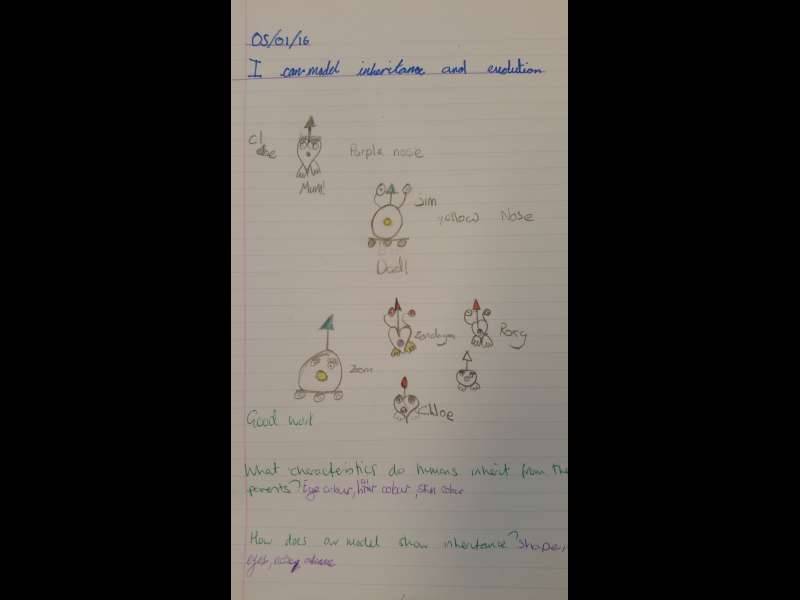 05/01/16
I can model inheritance and evolution
Purple nose
Mum!
Jim
yellow Nose
Dad!
Roxy
Zoom
Chloe
What characteristics do humans inherit from the
parents? Eye colour, hair colour, skin colour
How does our model show inheritance? shape,
eyes,